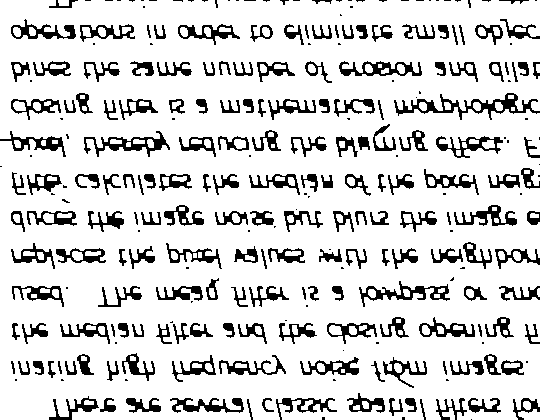 There are several classic spatial filters for
inating high frequency noise from images.
the median filter and the closing opening fi
used. The mean filter is a lowpass or smo
replaces the pixel values with the neighbor
duces the image noise but blurs the image e
filter calculates the median of the pixel neigh
pixel, thereby reducing the blurring effect. F
closing filter is a mathematical morphologic
bines the same number of erosion and dilat
operations in order to eliminate small objec